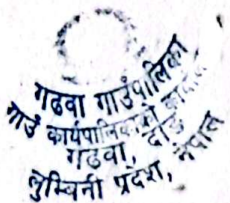 गढवा गाउँपालिका
गाउँ कार्यपालिकाको
गढवा, दाङ
लुम्बिनी प्रदेश, नेपाल